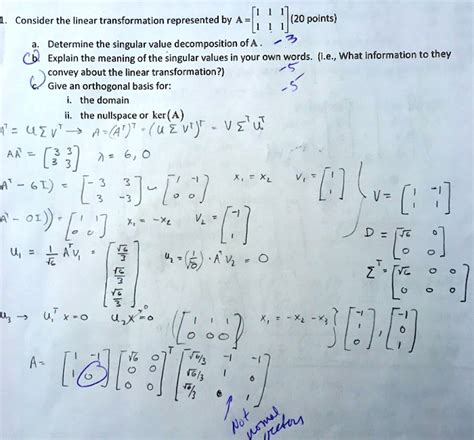 1. Consider the linear transformation represented by A = [1 1 1; 1 1 1] (20 points)
a. Determine the singular value decomposition of A. -3
b. Explain the meaning of the singular values in your own words. (i.e., What information to they
convey about the linear transformation?) -5
c. Give an orthogonal basis for: -5
i. the domain
ii. the nullspace or ker(A)
Aᵀ = U Σ Vᵀ → A = (Aᵀ)ᵀ = (U Σ Vᵀ)ᵀ = V Σᵀ Uᵀ
AAᵀ = [3 3; 3 3] λ = 6, 0
- 6I) = [-3 3; 3 -3] ~ [1 -1; 0 0] x₁ = x₂ V₁ = [1; 1] V = [1 -1; 1 1]
- 0I)) = [1 1; 0 0] x₁ = -x₂ V₂ = [-1; 1] D = [√6 0; 0 0]
u₁ = 1/√6 AᵀV₁ = [√6/3; √6/3; √6/3] u₂ = (1/√0) · AᵀV₂ = 0 Σᵀ = [√6 0 0; 0 0 0]
u₃ → u₁ᵀ x = 0 u₂x = 0 [1 1 1; 0 0 0] x₁ = -x₂ - x₃} [-1; 1; 0], [-1; 0; 1]
A = [1 -1; 1 0] [√6 0; 0 0; 0 0]ᵀ [√6/3 -1 -1; √6/3 1 0; √6/3 0 1]
Not
normal
vectors